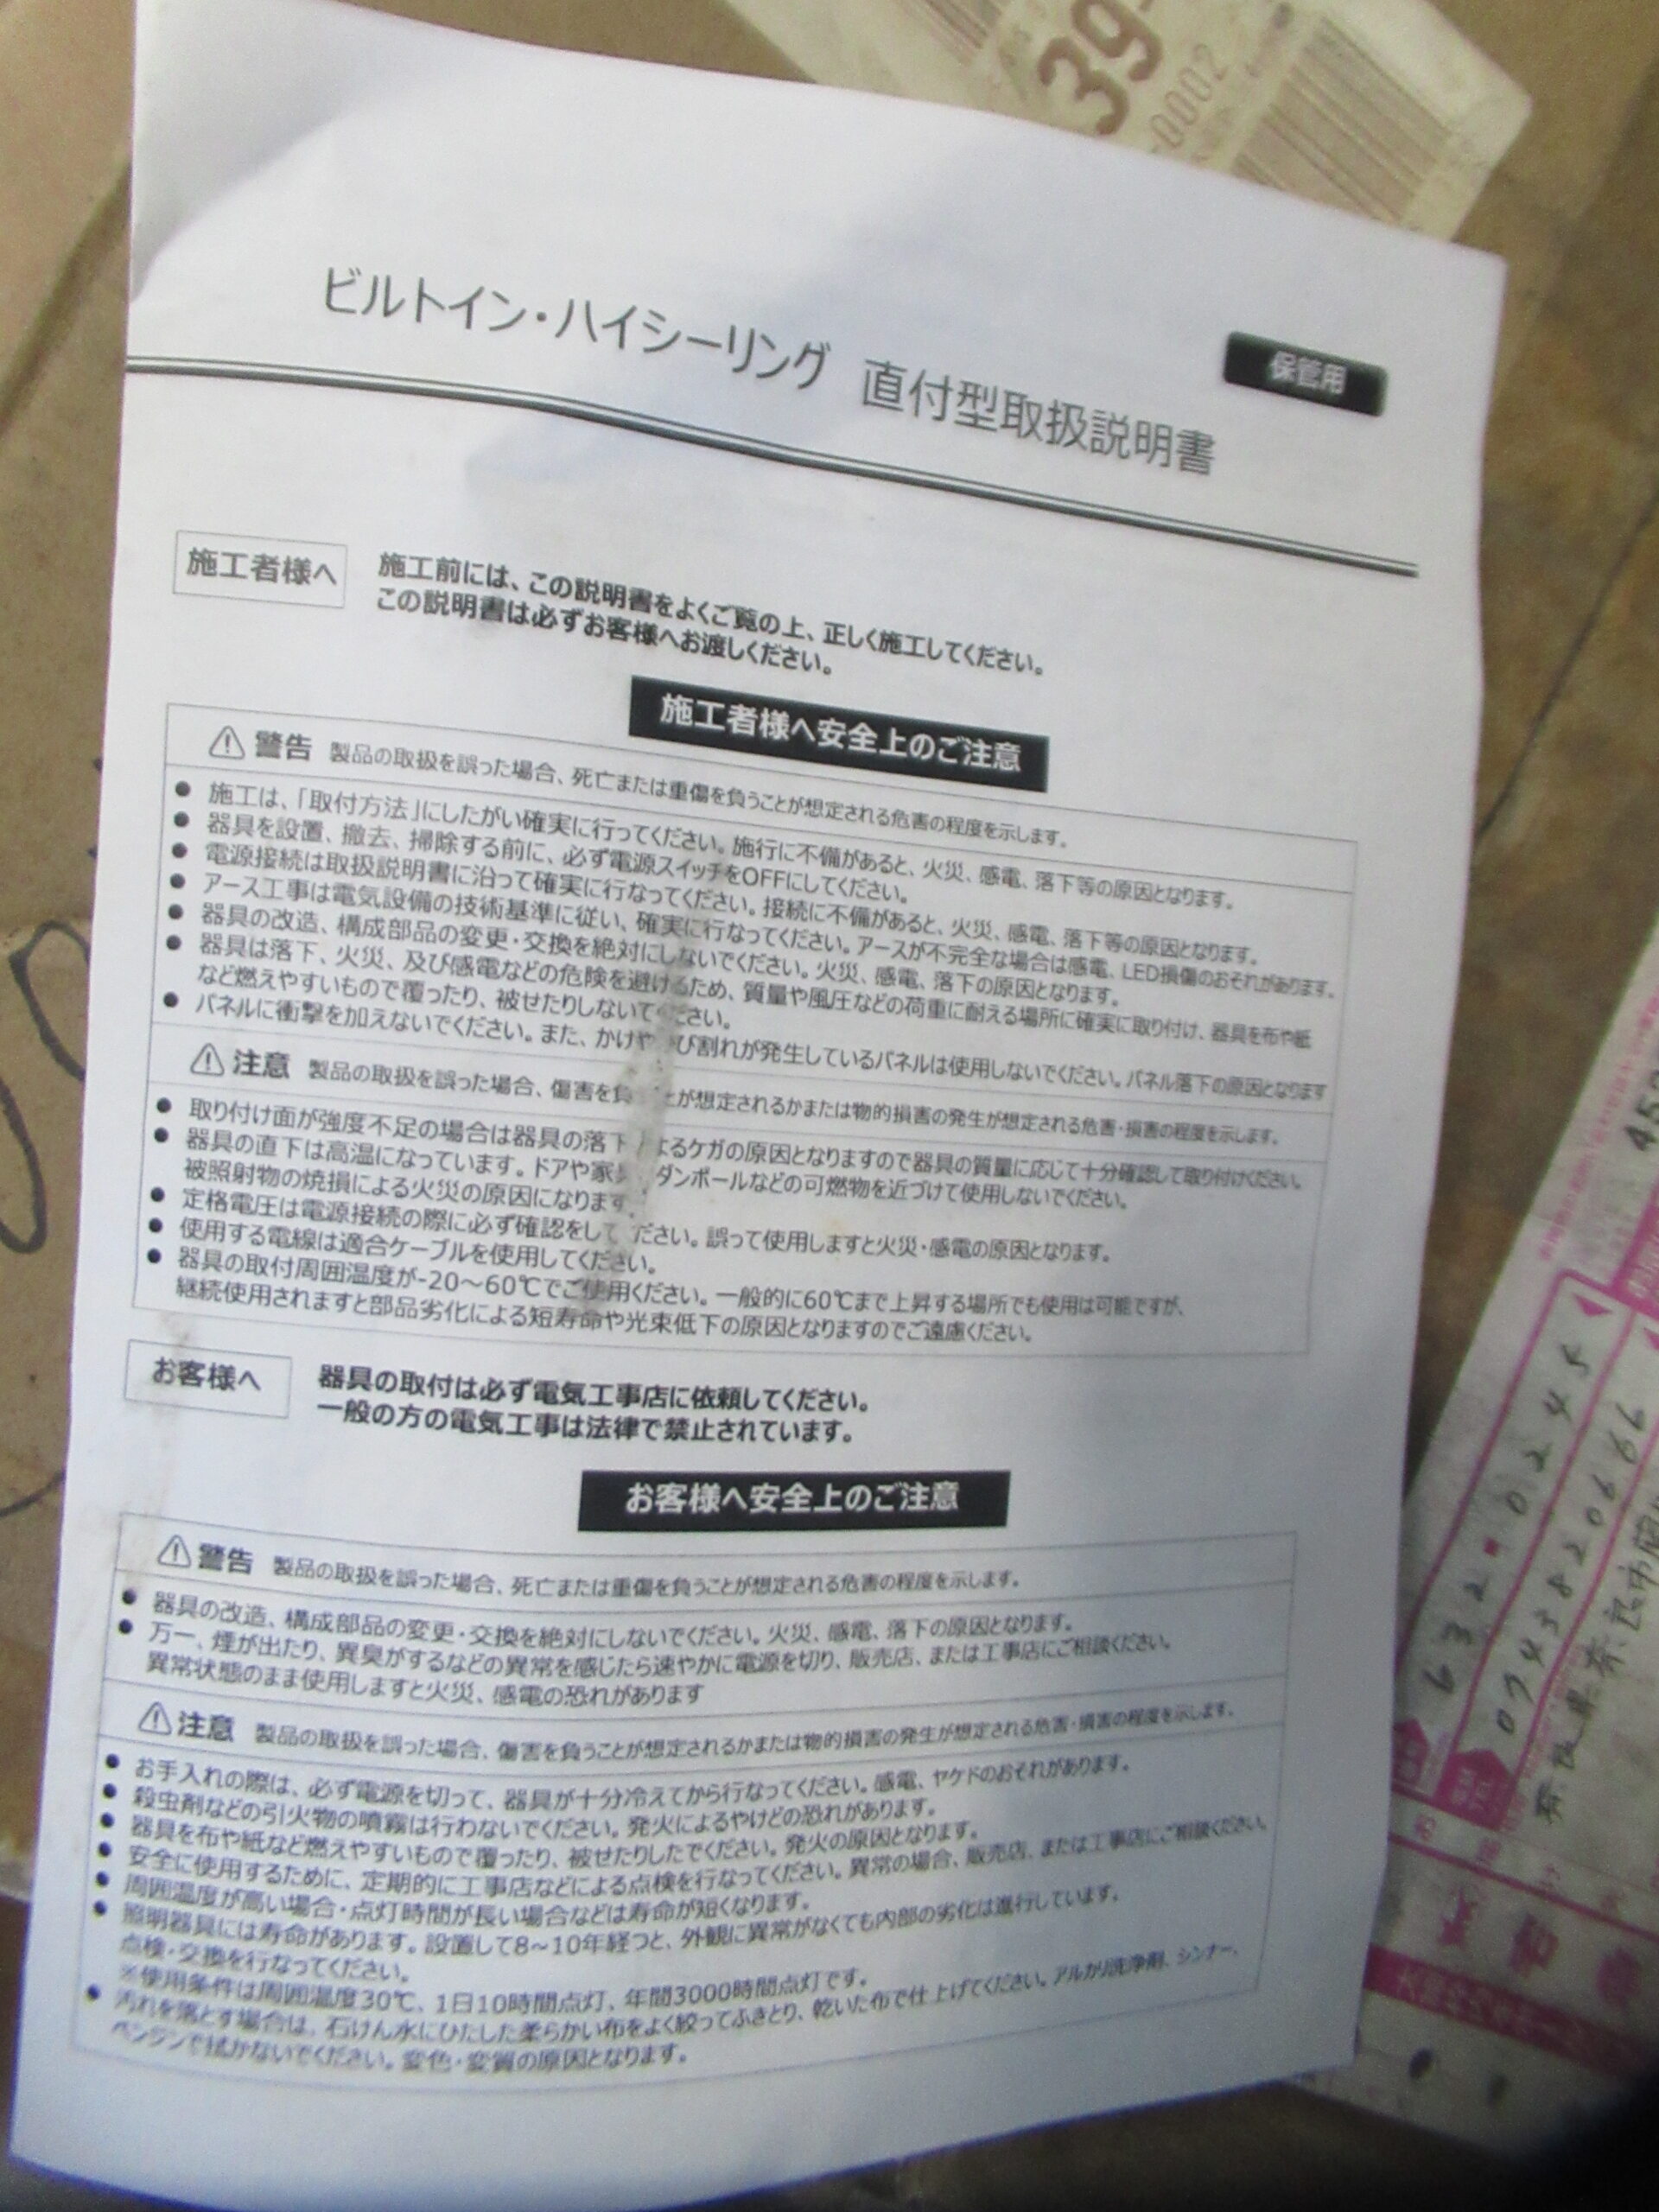 39
-0002
ビルトイン・ハイシーリング 直付型取扱説明書
保管用
施工者様へ
施工前には、この説明書をよくご覧の上、正しく施工してください。
この説明書は必ずお客様へお渡しください。
施工者様へ安全上のご注意
警告 製品の取扱を誤った場合、死亡または重傷を負うことが想定される危害の程度を示します。
● 施工は、「取付方法」にしたがい確実に行ってください。施行に不備があると、火災、感電、落下等の原因となります。
● 器具を設置、撤去、掃除する前に、必ず電源スイッチをOFFにしてください。
● 電源接続は取扱説明書に沿って確実に行なってください。接続に不備があると、火災、感電、落下等の原因となります。
● アース工事は電気設備の技術基準に従い、確実に行なってください。アースが不完全な場合は感電、LED損傷のおそれがあります。
● 器具の改造、構成部品の変更・交換を絶対にしないでください。火災、感電、落下の原因となります。
● 器具は落下、火災、及び感電などの危険を避けるため、質量や風圧などの荷重に耐える場所に確実に取り付け、器具を布や紙
など燃えやすいもので覆ったり、被せたりしないでください。
● パネルに衝撃を加えないでください。また、かけやひび割れが発生しているパネルは使用しないでください。パネル落下の原因となります
注意 製品の取扱を誤った場合、傷害を負 とが想定されるかまたは物的損害の発生が想定される危害・損害の程度を示します。
● 取り付け面が強度不足の場合は器具の落下 よるケガの原因となりますので器具の質量に応じて十分確認して取り付けください。
● 器具の直下は高温になっています。ドアや家具 ダンボールなどの可燃物を近づけて使用しないでください。
被照射物の焼損による火災の原因になります。
● 定格電圧は電源接続の際に必ず確認をして ださい。誤って使用しますと火災・感電の原因となります。
● 使用する電線は適合ケーブルを使用してください。
● 器具の取付周囲温度が-20～60℃でご使用ください。一般的に60℃まで上昇する場所でも使用は可能ですが、
継続使用されますと部品劣化による短寿命や光束低下の原因となりますのでご遠慮ください。
お客様へ
器具の取付は必ず電気工事店に依頼してください。
一般の方の電気工事は法律で禁止されています。
お客様へ安全上のご注意
警告 製品の取扱を誤った場合、死亡または重傷を負うことが想定される危害の程度を示します。
● 器具の改造、構成部品の変更・交換を絶対にしないでください。火災、感電、落下の原因となります。
● 万一、煙が出たり、異臭がするなどの異常を感じたら速やかに電源を切り、販売店、または工事店にご相談ください。
異常状態のまま使用しますと火災、感電の恐れがあります
注意 製品の取扱を誤った場合、傷害を負うことが想定されるかまたは物的損害の発生が想定される危害・損害の程度を示します。
● お手入れの際は、必ず電源を切って、器具が十分冷えてから行なってください。感電、ヤケドのおそれがあります。
● 殺虫剤などの引火物の噴霧は行わないでください。発火によるやけどの恐れがあります。
● 器具を布や紙など燃えやすいもので覆ったり、被せたりしたでください。発火の原因となります。
● 安全に使用するために、定期的に工事店などによる点検を行なってください。異常の場合、販売店、または工事店にご相談ください。
● 周囲温度が高い場合・点灯時間が長い場合などは寿命が短くなります。
● 照明器具には寿命があります。設置して8～10年経つと、外観に異常がなくても内部の劣化は進行しています。
点検・交換を行なってください。
※使用条件は周囲温度30℃、1日10時間点灯、年間3000時間点灯です。
● 汚れを落とす場合は、石けん水にひたした柔らかい布をよく絞ってふきとり、乾いた布で仕上げてください。アルカリ洗浄剤、シンナー、
ベンジンで拭かないでください。変色・変質の原因となります。
632-0245
0743820666